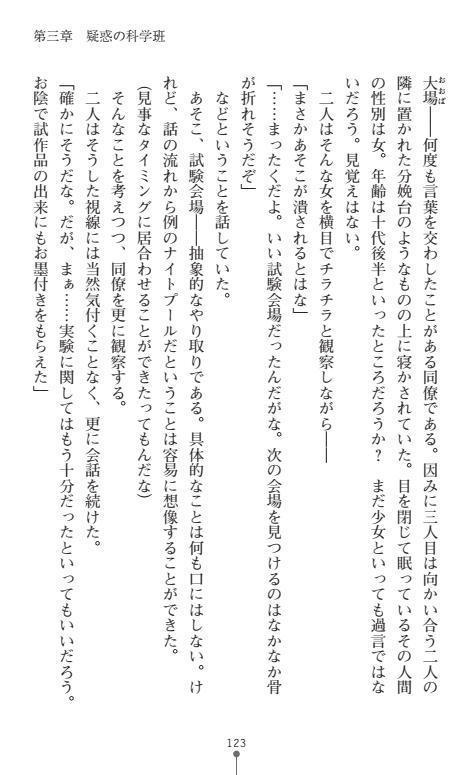 第三章　疑惑の科学班
大場――何度も言葉を交わしたことがある同僚である。因みに三人目は向かい合う二人の
おおば
隣に置かれた分娩台のようなものの上に寝かされていた。目を閉じて眠っているその人間
の性別は女。年齢は十代後半といったところだろうか？　まだ少女といっても過言ではな
いだろう。見覚えはない。
　二人はそんな女を横目でチラチラと観察しながら――
「まさかあそこが潰されるとはな」
「……まったくだよ。いい試験会場だったんだがな。次の会場を見つけるのはなかなか骨
が折れそうだぞ」
　などということを話していた。
　あそこ、試験会場――抽象的なやり取りである。具体的なことは何も口にはしない。け
れど、話の流れから例のナイトプールだということは容易に想像することができた。
（見事なタイミングに居合わせることができたってもんだな）
　そんなことを考えつつ、同僚を更に観察する。
　二人はそうした視線には当然気付くことなく、更に会話を続けた。
「確かにそうだな。だが、まぁ……実験に関してはもう十分だったといってもいいだろう。
お陰で試作品の出来にもお墨付きをもらえた」
123